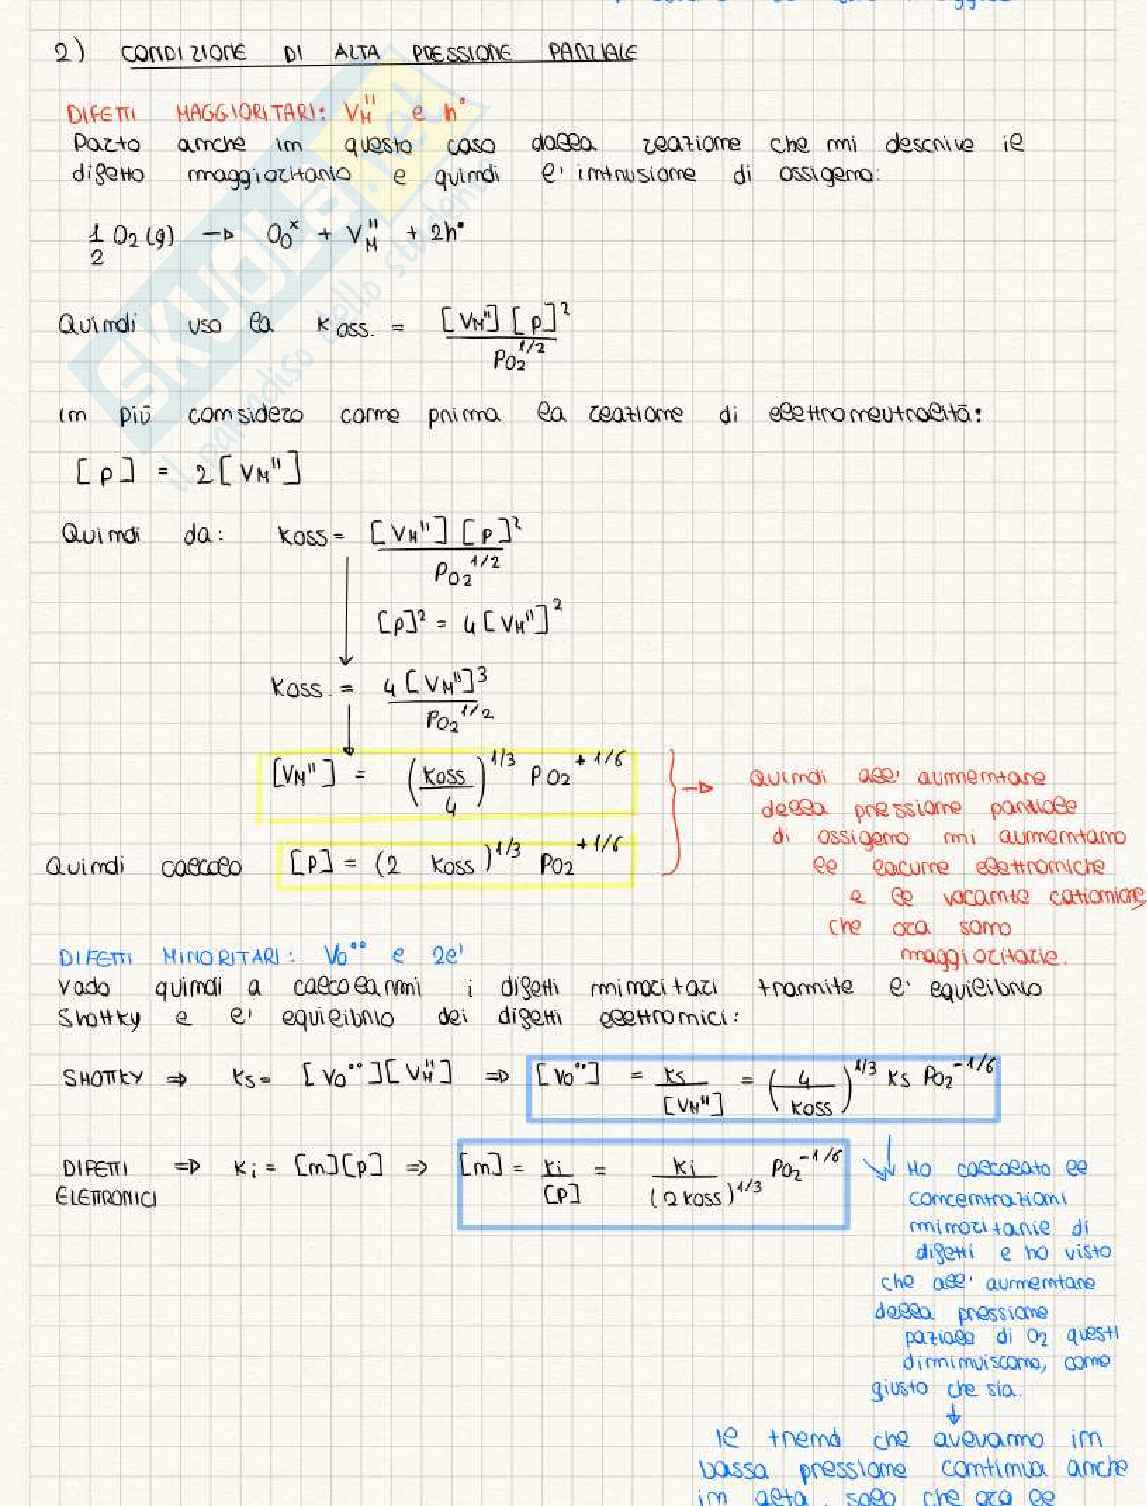 2) CONDIZIONE DI ALTA PRESSIONE PARZIALE
DIFETTI MAGGIORITARI: V_M'' e h•
Parto anche in questo caso dalla reazione che mi descrive il
difetto maggioritario e quindi l'intrusione di ossigeno:
1/2 O2(g) → O_O^x + V_M'' + 2h•
Quindi uso la Koss. = [V_M''][p]^2 / P_O2^1/2
in più considero come prima la reazione di elettroneutralità:
[p] = 2[V_M'']
Quindi da: Koss = [V_M''][p]^2 / P_O2^1/2
[p]^2 = 4[V_M'']^2
Koss. = 4[V_M'']^3 / P_O2^1/2
[V_M''] = (Koss/4)^1/3 P_O2^+1/6
Quindi calcolo [p] = (2 Koss)^1/3 P_O2^+1/6
→ Quindi all'aumentare
della pressione parziale
di ossigeno mi aumentano
le lacune elettroniche
e le vacante cationiche
che ora sono
maggioritarie.
DIFETTI MINORITARI: Vo•• e 2e'
Vado quindi a calcolarmi i difetti minoritari tramite l'equilibrio
Shottky e l'equilibrio dei difetti elettronici:
SHOTTKY ⇒ Ks = [Vo••][V_M''] ⇒ [Vo••] = Ks/[V_M''] = (4/Koss)^1/3 Ks P_O2^-1/6
DIFETTI ELETTRONICI ⇒ Ki = [n][p] ⇒ [n] = Ki/[p] = Ki/(2Koss)^1/3 P_O2^-1/6
Ho calcolato le
concentrazioni
minoritarie di
difetti e ho visto
che all'aumentare
della pressione
paziale di O2 questi
diminuiscono, come
giusto che sia.
↓
Il trend che avevamo in
bassa pressione continua anche
in alta, solo che ora le
SKUOLA.net
il paradiso dello studente